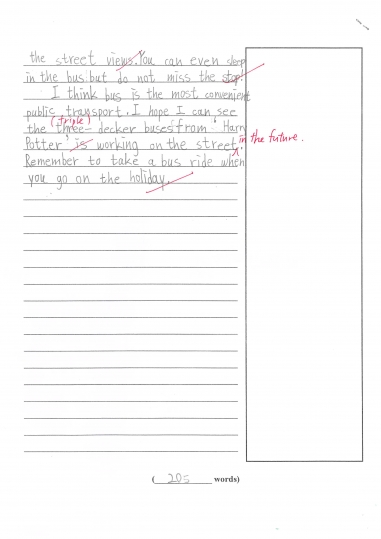 the street views. You can even sleep
in the bus but do not miss the stop!
I think bus is the most convenient
public transport. I hope I can see
(triple)
the three-decker buses from 'Harry
Potter' is working on the street in the future.
Remember to take a bus ride when
you go on the holiday.
( 205 words)